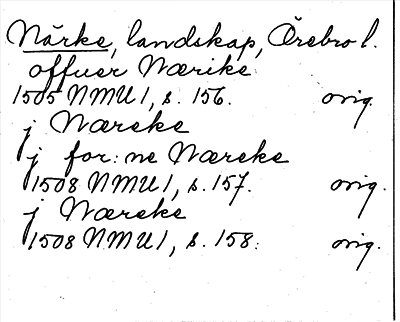 Närke, landskap, Örebro l.
offuer Nærike
1505 NMU 1, s. 156. orig.
j Næreke
j for:ne Næreke
1508 NMU 1, s. 157. orig.
j Næreke
1508 NMU 1, s. 158. orig.